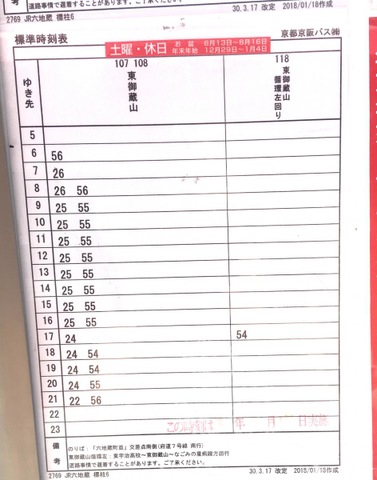 考 道路事情で遅着することがあります。ご了承ください。
2769 JR六地蔵 標柱6 30.3.17 改定 2018/01/18作成
標準時刻表 京都京阪バス㈱
土曜・休日 お盆 8月13日~8月16日
年末年始 12月29日~1月4日
ゆき先 107 108 東御蔵山 118 東御蔵山循環左回り
5
6 56
7 26
8 26 56
9 25 55
10 25 55
11 25 55
12 25 55
13 25 55
14 25 55
15 25 55
16 25 55
17 24 54
18 24 54
19 24 54
20 24 55
21 22 56
22
23
備考 のりば:「六地蔵町並」交差点南側(府道7号線 南行)
東御蔵山循環左: 東宇治高校~東御蔵山~なごみの里病院方面行
道路事情で遅着することがあります。ご了承ください。
2769 JR六地蔵 標柱6 30.3.17 改定 2018/01/18作成